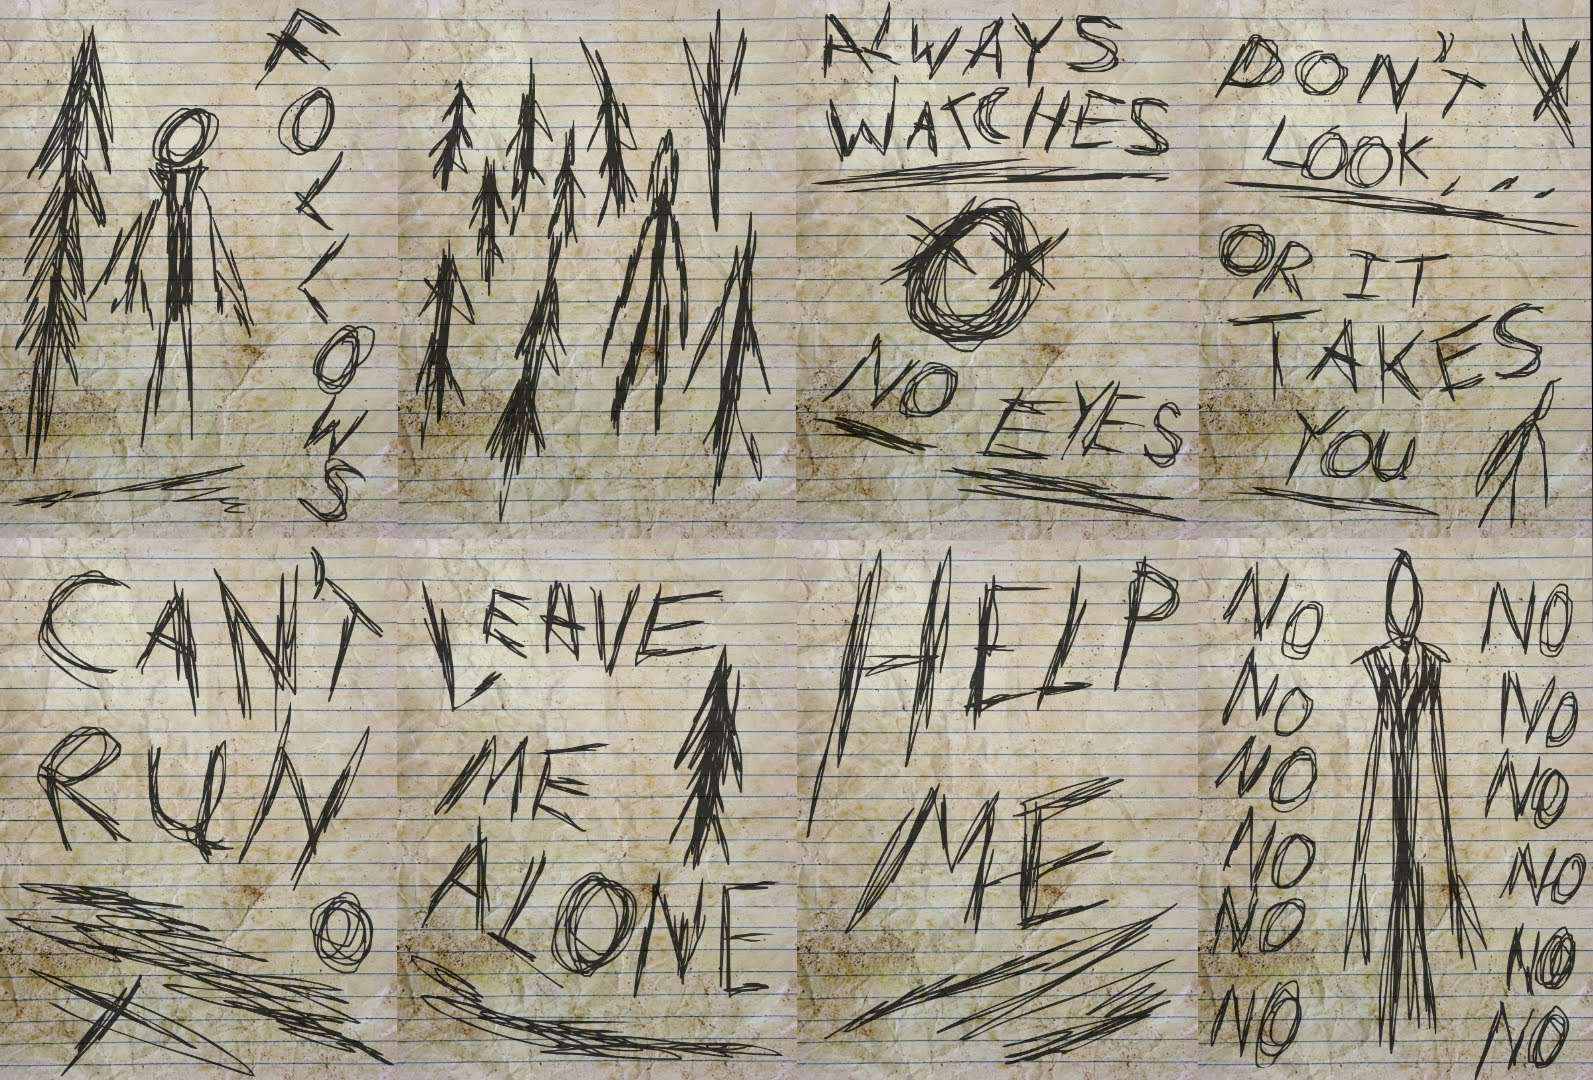 FOLLOWS
ALWAYS
WATCHES
NO EYES
DON'T
LOOK...
OR IT
TAKES
YOU
CAN'T
RUN
LEAVE
ME
ALONE
HELP
ME
NO
NO
NO
NO
NO
NO
NO
NO
NO
NO
NO
NO